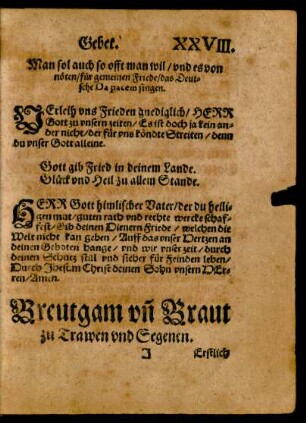 Gebet. XXVIII.
Man sol auch so offt man wil / vnd es von
nöten / für gemeinen Friede / das Deut-
sche Da pacem singen.
VErleih vns Frieden gnediglich / HERR
Gott zu vnsern zeiten / Es ist doch ja kein an-
der nicht / der für vns köndte Streiten / denn
du vnser Gott alleine.
Gott gib Fried in deinem Lande.
Glück vnd Heil zu allem Stande.
HERR Gott himlischer Vater / der du heili-
gen mut / guten rath vnd rechte wercke schaf-
fest / Gib deinen Dienern Friede / welchen die
Welt nicht kan geben / Auff das vnser Hertzen an
deinen Geboten hange / vnd wir vnser zeit / durch
deinen Schutz stil vnd sicher für Feinden leben /
Durch Jhesum Christ deinen Sohn vnsern HEr-
ren / Amen.
Breutgam vñ Braut
zu Trawen vnd Segenen.
J Erstlich